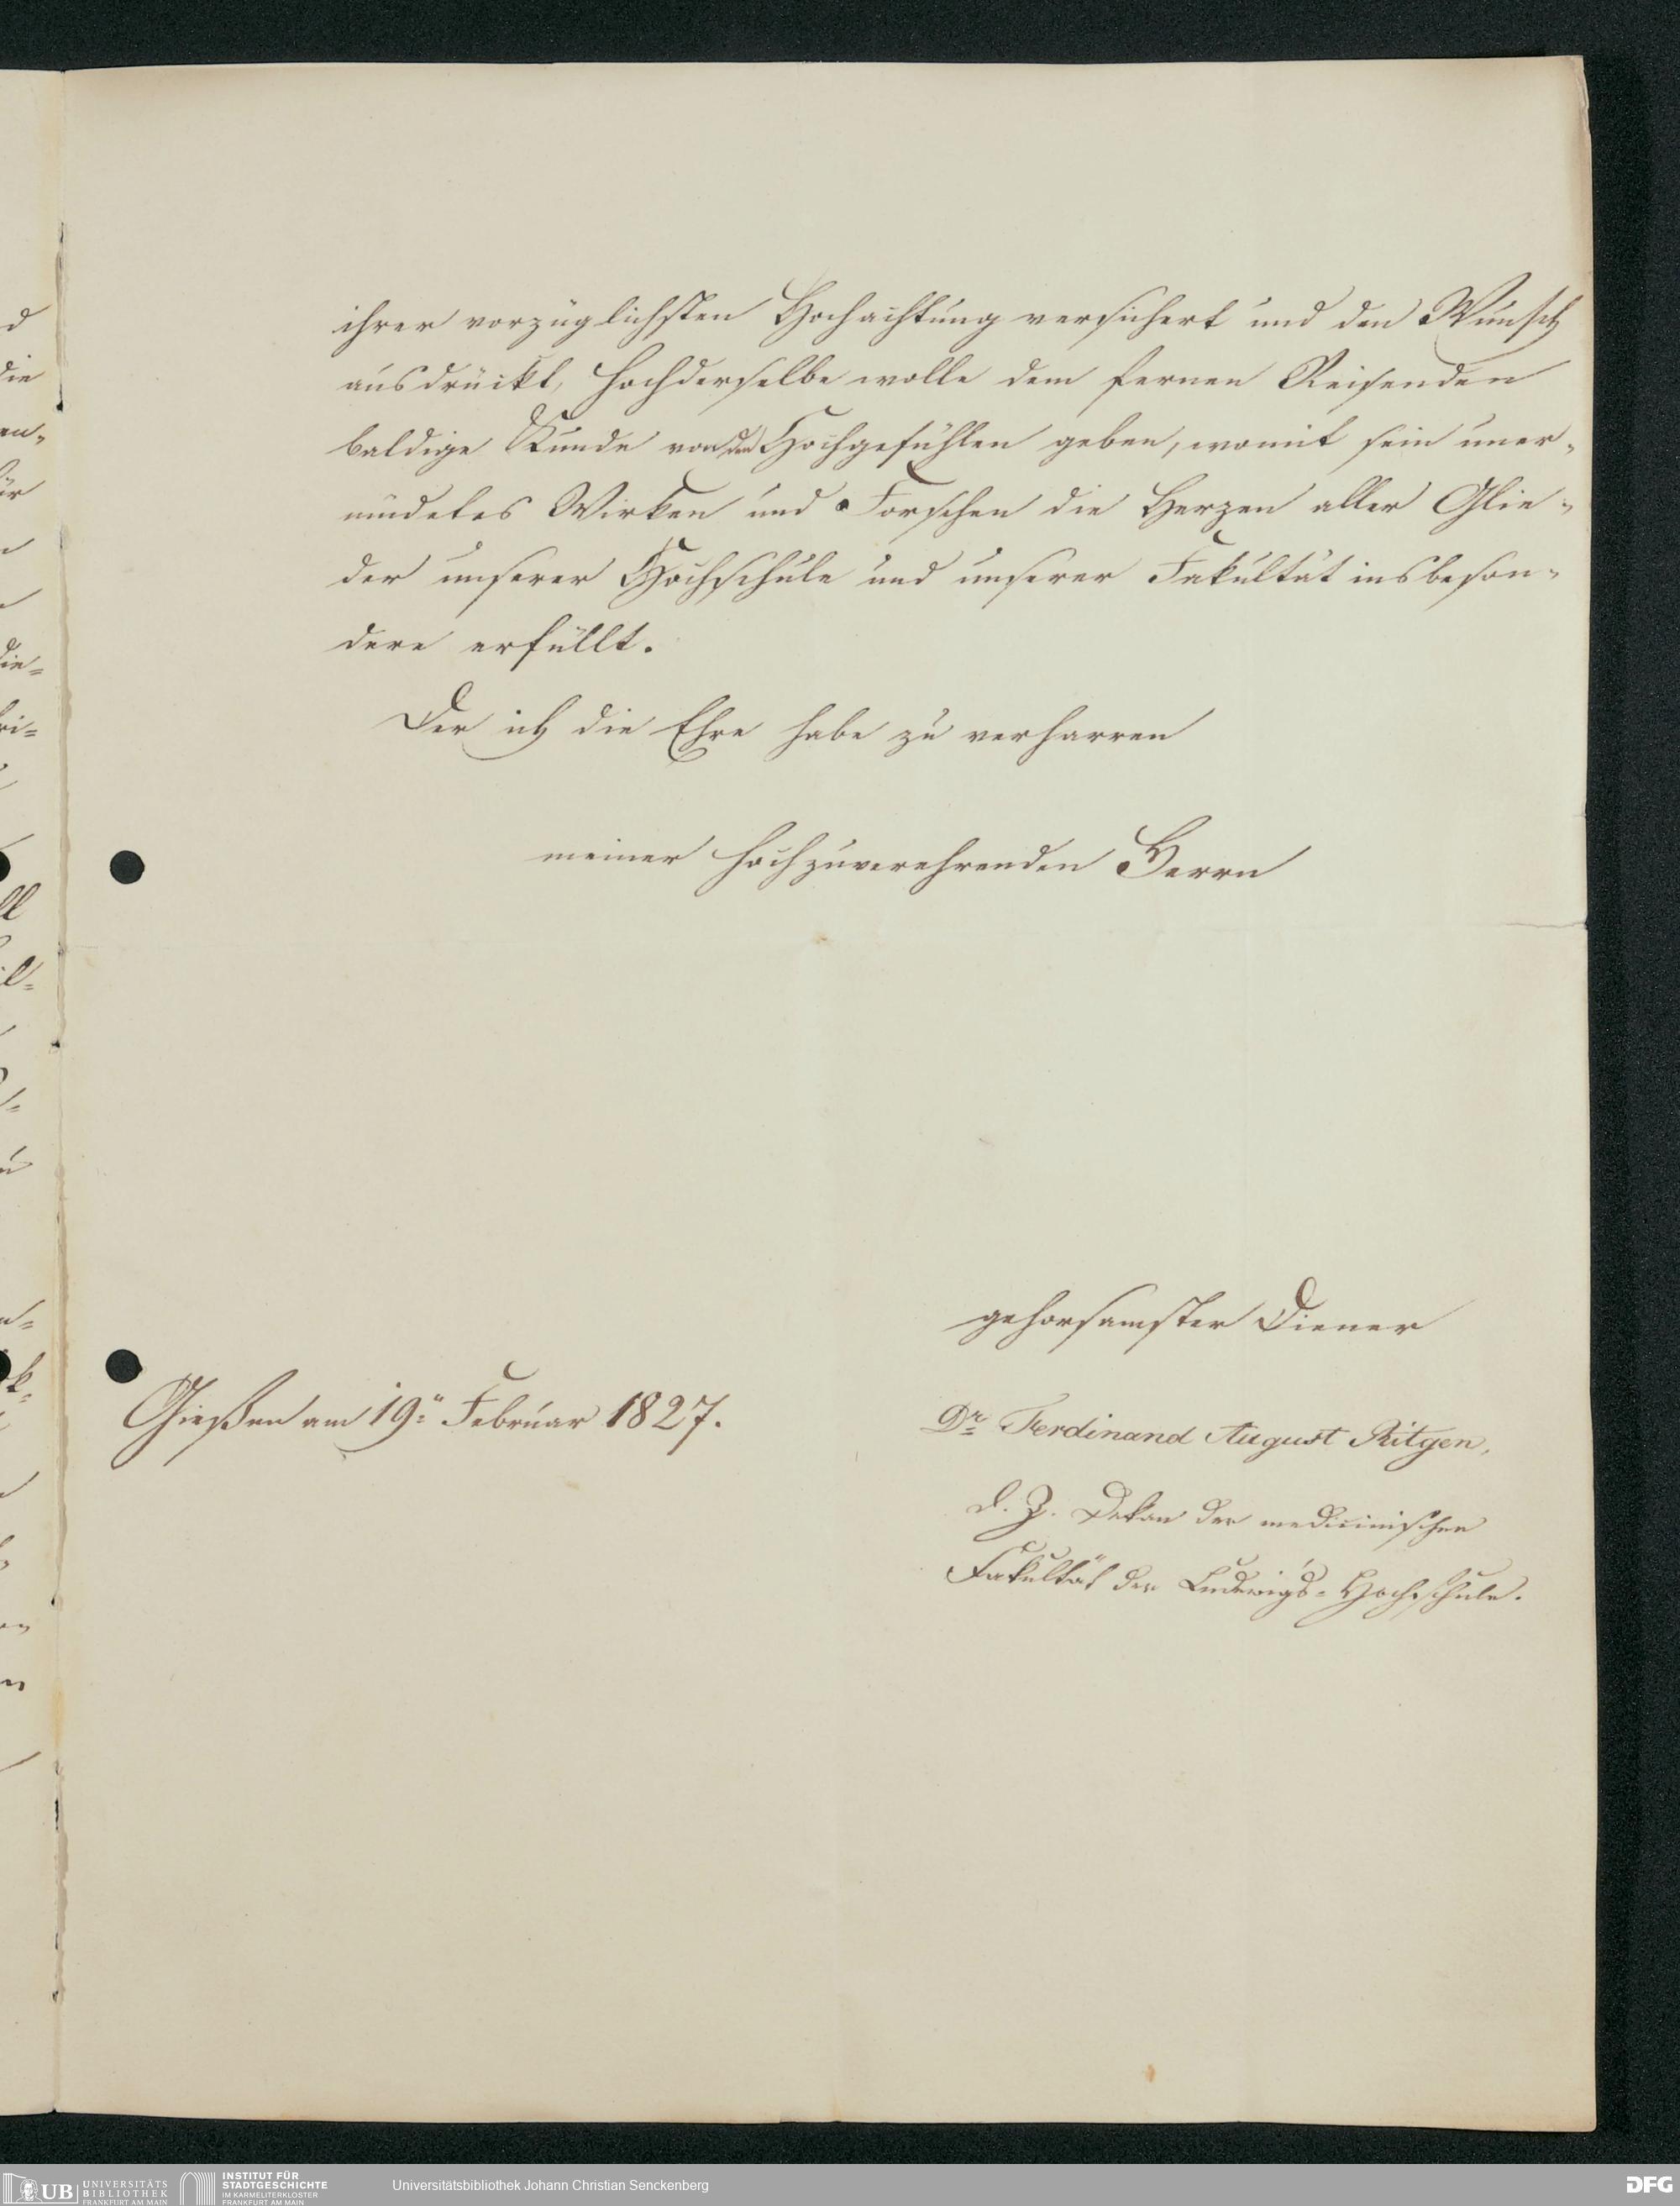 ihrer vorzüglichsten Hochachtung versichert und den Wunsch
ausdrückt, Hochderselbe wolle dem fernen Reisenden
baldige Kunde von den Hochgefühlen geben, womit sein uner-
müdetes Wirken und Forschen die Herzen aller Glie-
der unserer Hochschule und unserer Fakultät insbeson-
dere erfüllt.
Der ich die Ehre habe zu verharren
meiner hochzuverehrenden Herrn
gehorsamster Diener
Gießen am 19n Februar 1827.
Dr Ferdinand August Ritgen,
d. Z. Dekan der medicinischen
Fakultät der Ludewigs-Hochschule.
UB UNIVERSITÄTS BIBLIOTHEK FRANKFURT AM MAIN
INSTITUT FÜR STADTGESCHICHTE IM KARMELITERKLOSTER FRANKFURT AM MAIN
Universitätsbibliothek Johann Christian Senckenberg
DFG